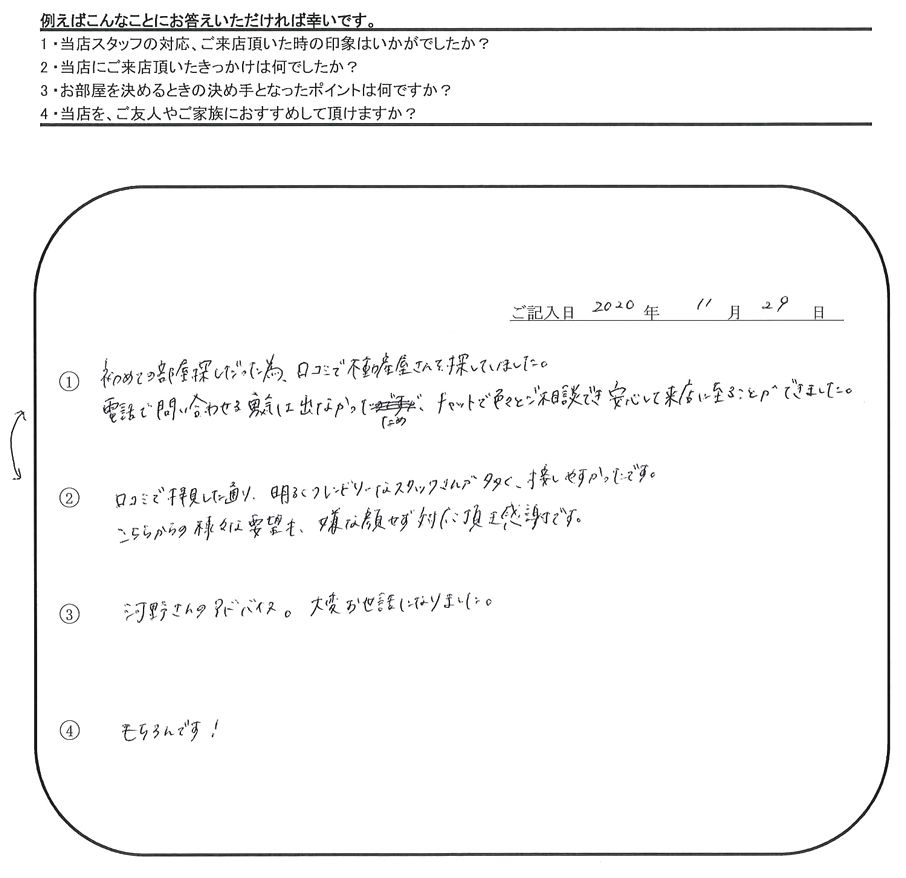 例えばこんなことにお答えいただければ幸いです。
1・当店スタッフの対応、ご来店頂いた時の印象はいかがでしたか？
2・当店にご来店頂いたきっかけは何でしたか？
3・お部屋を決めるときの決め手となったポイントは何ですか？
4・当店を、ご友人やご家族におすすめして頂けますか？
ご記入日 2020 年 11 月 29 日
① 初めての部屋探しだった為、口コミで不動産屋さんを探していました。
電話で問い合わせる勇気は出なかった ため、チャットで色々とご相談でき安心して来店に至ることができました。
② 口コミで拝見した通り、明るくフレンドリーなスタッフさんが多く、接しやすかったです。
こちらからの様々な要望も、嫌な顔せず対応頂き感謝です。
③ 河野さんのアドバイス。大変お世話になりました。
④ もちろんです！